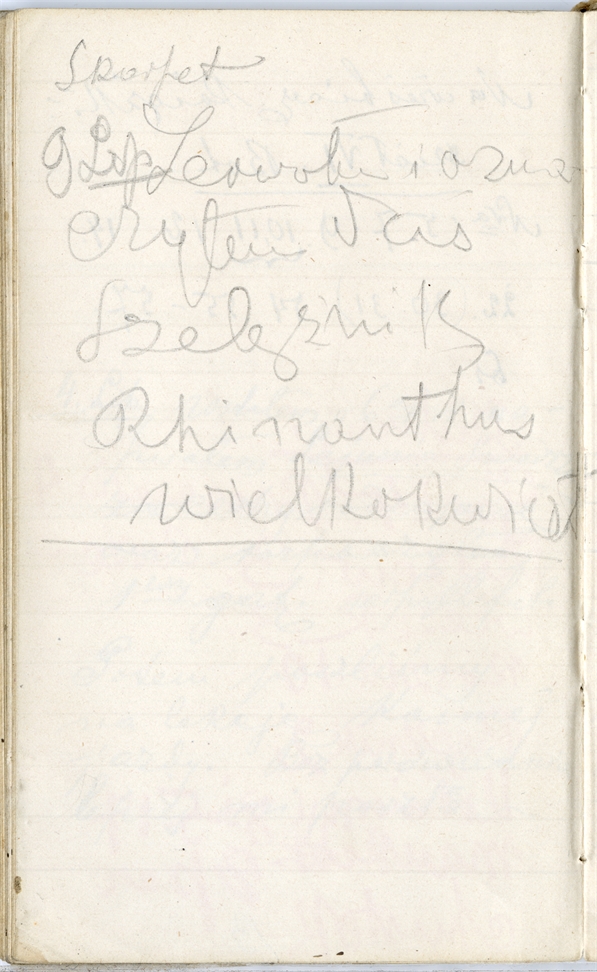 Skarpet
9 Lip Zerwoł i ozna
czyłem
Szelężnik
Rhinanthus
wielkokwiat